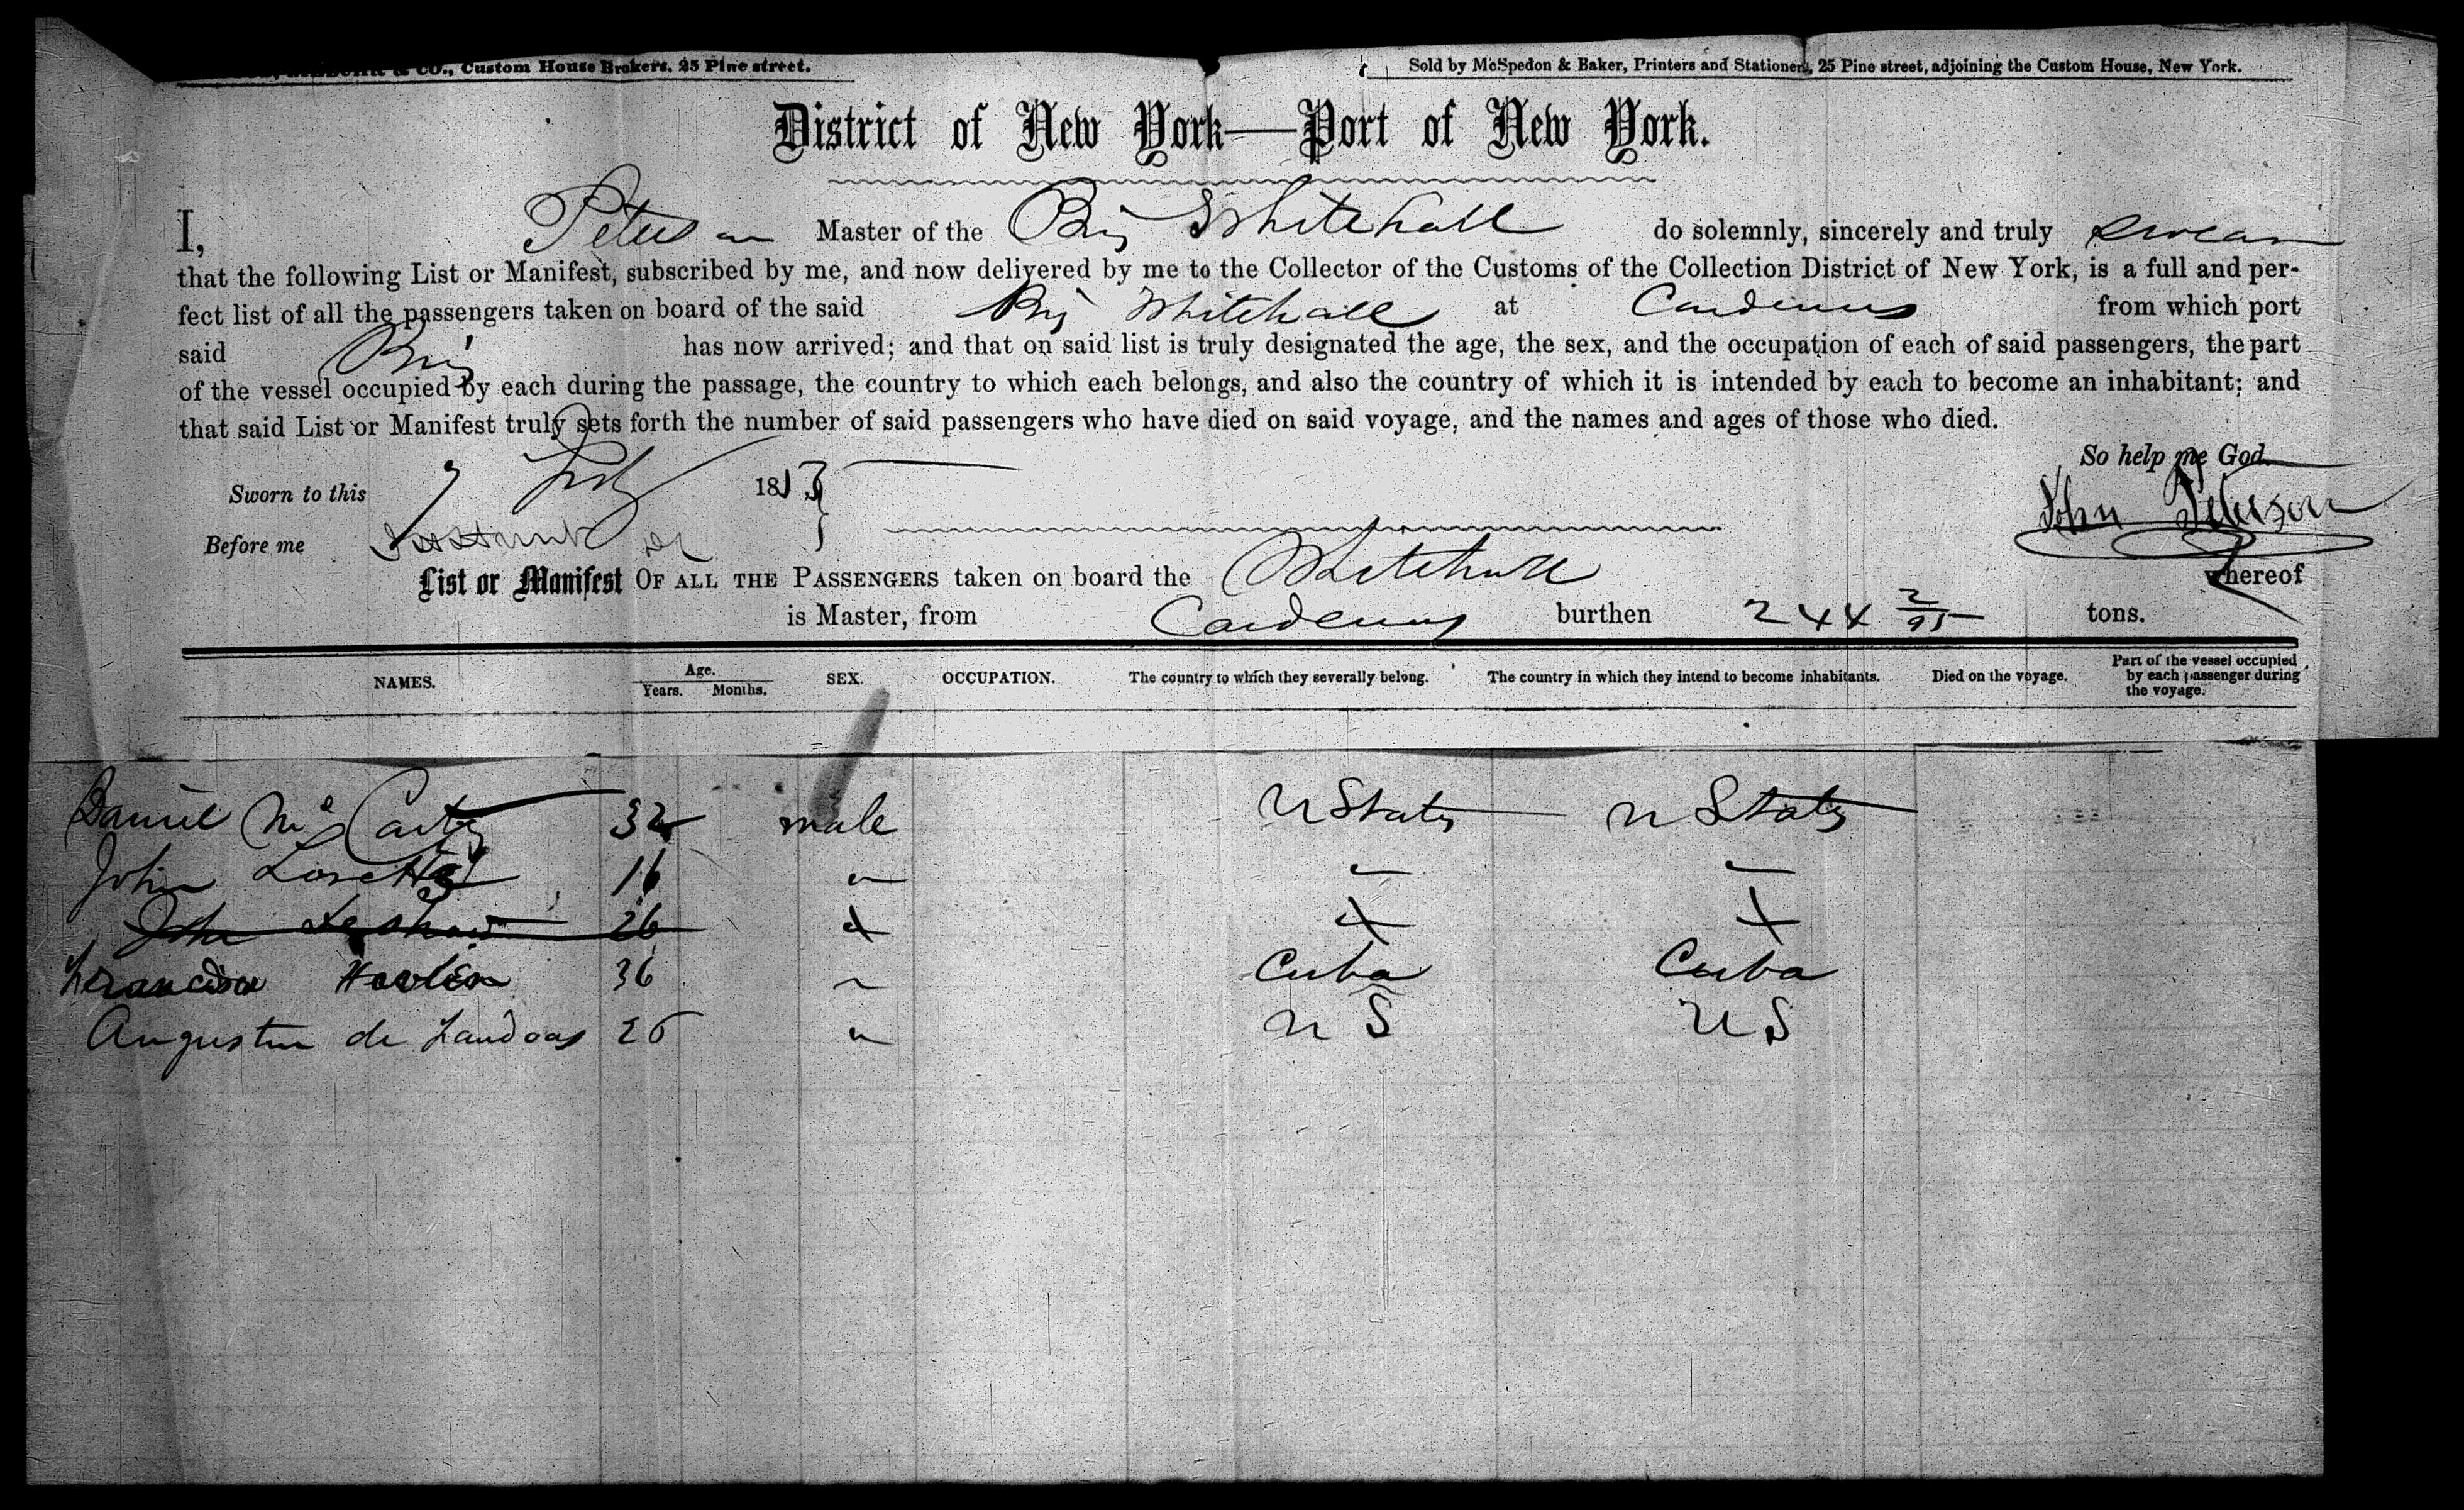 & CO., Custom House Brokers, 25 Pine street.
Sold by McSpedon & Baker, Printers and Stationers, 25 Pine street, adjoining the Custom House, New York.
District of New York—Port of New York.
I, Peterson Master of the Brig Whitehall do solemnly, sincerely and truly swear
that the following List or Manifest, subscribed by me, and now delivered by me to the Collector of the Customs of the Collection District of New York, is a full and per-
fect list of all the passengers taken on board of the said Brig Whitehall at Cardenas from which port
said Brig has now arrived; and that on said list is truly designated the age, the sex, and the occupation of each of said passengers, the part
of the vessel occupied by each during the passage, the country to which each belongs, and also the country of which it is intended by each to become an inhabitant; and
that said List or Manifest truly sets forth the number of said passengers who have died on said voyage, and the names and ages of those who died.
So help me God.
Sworn to this 7 1853
John Peterson
Before me
List or Manifest OF ALL THE PASSENGERS taken on board the Whitehall whereof
is Master, from Cardenas burthen 244 2/95 tons.
NAMES. Age. Years. Months. SEX. OCCUPATION. The country to which they severally belong. The country in which they intend to become inhabitants. Died on the voyage. Part of the vessel occupied by each passenger during the voyage.
Daniel McCarty 32 male U States U States
John 16
John 26
36 Cuba Cuba
Augustin de Landoas U S U S